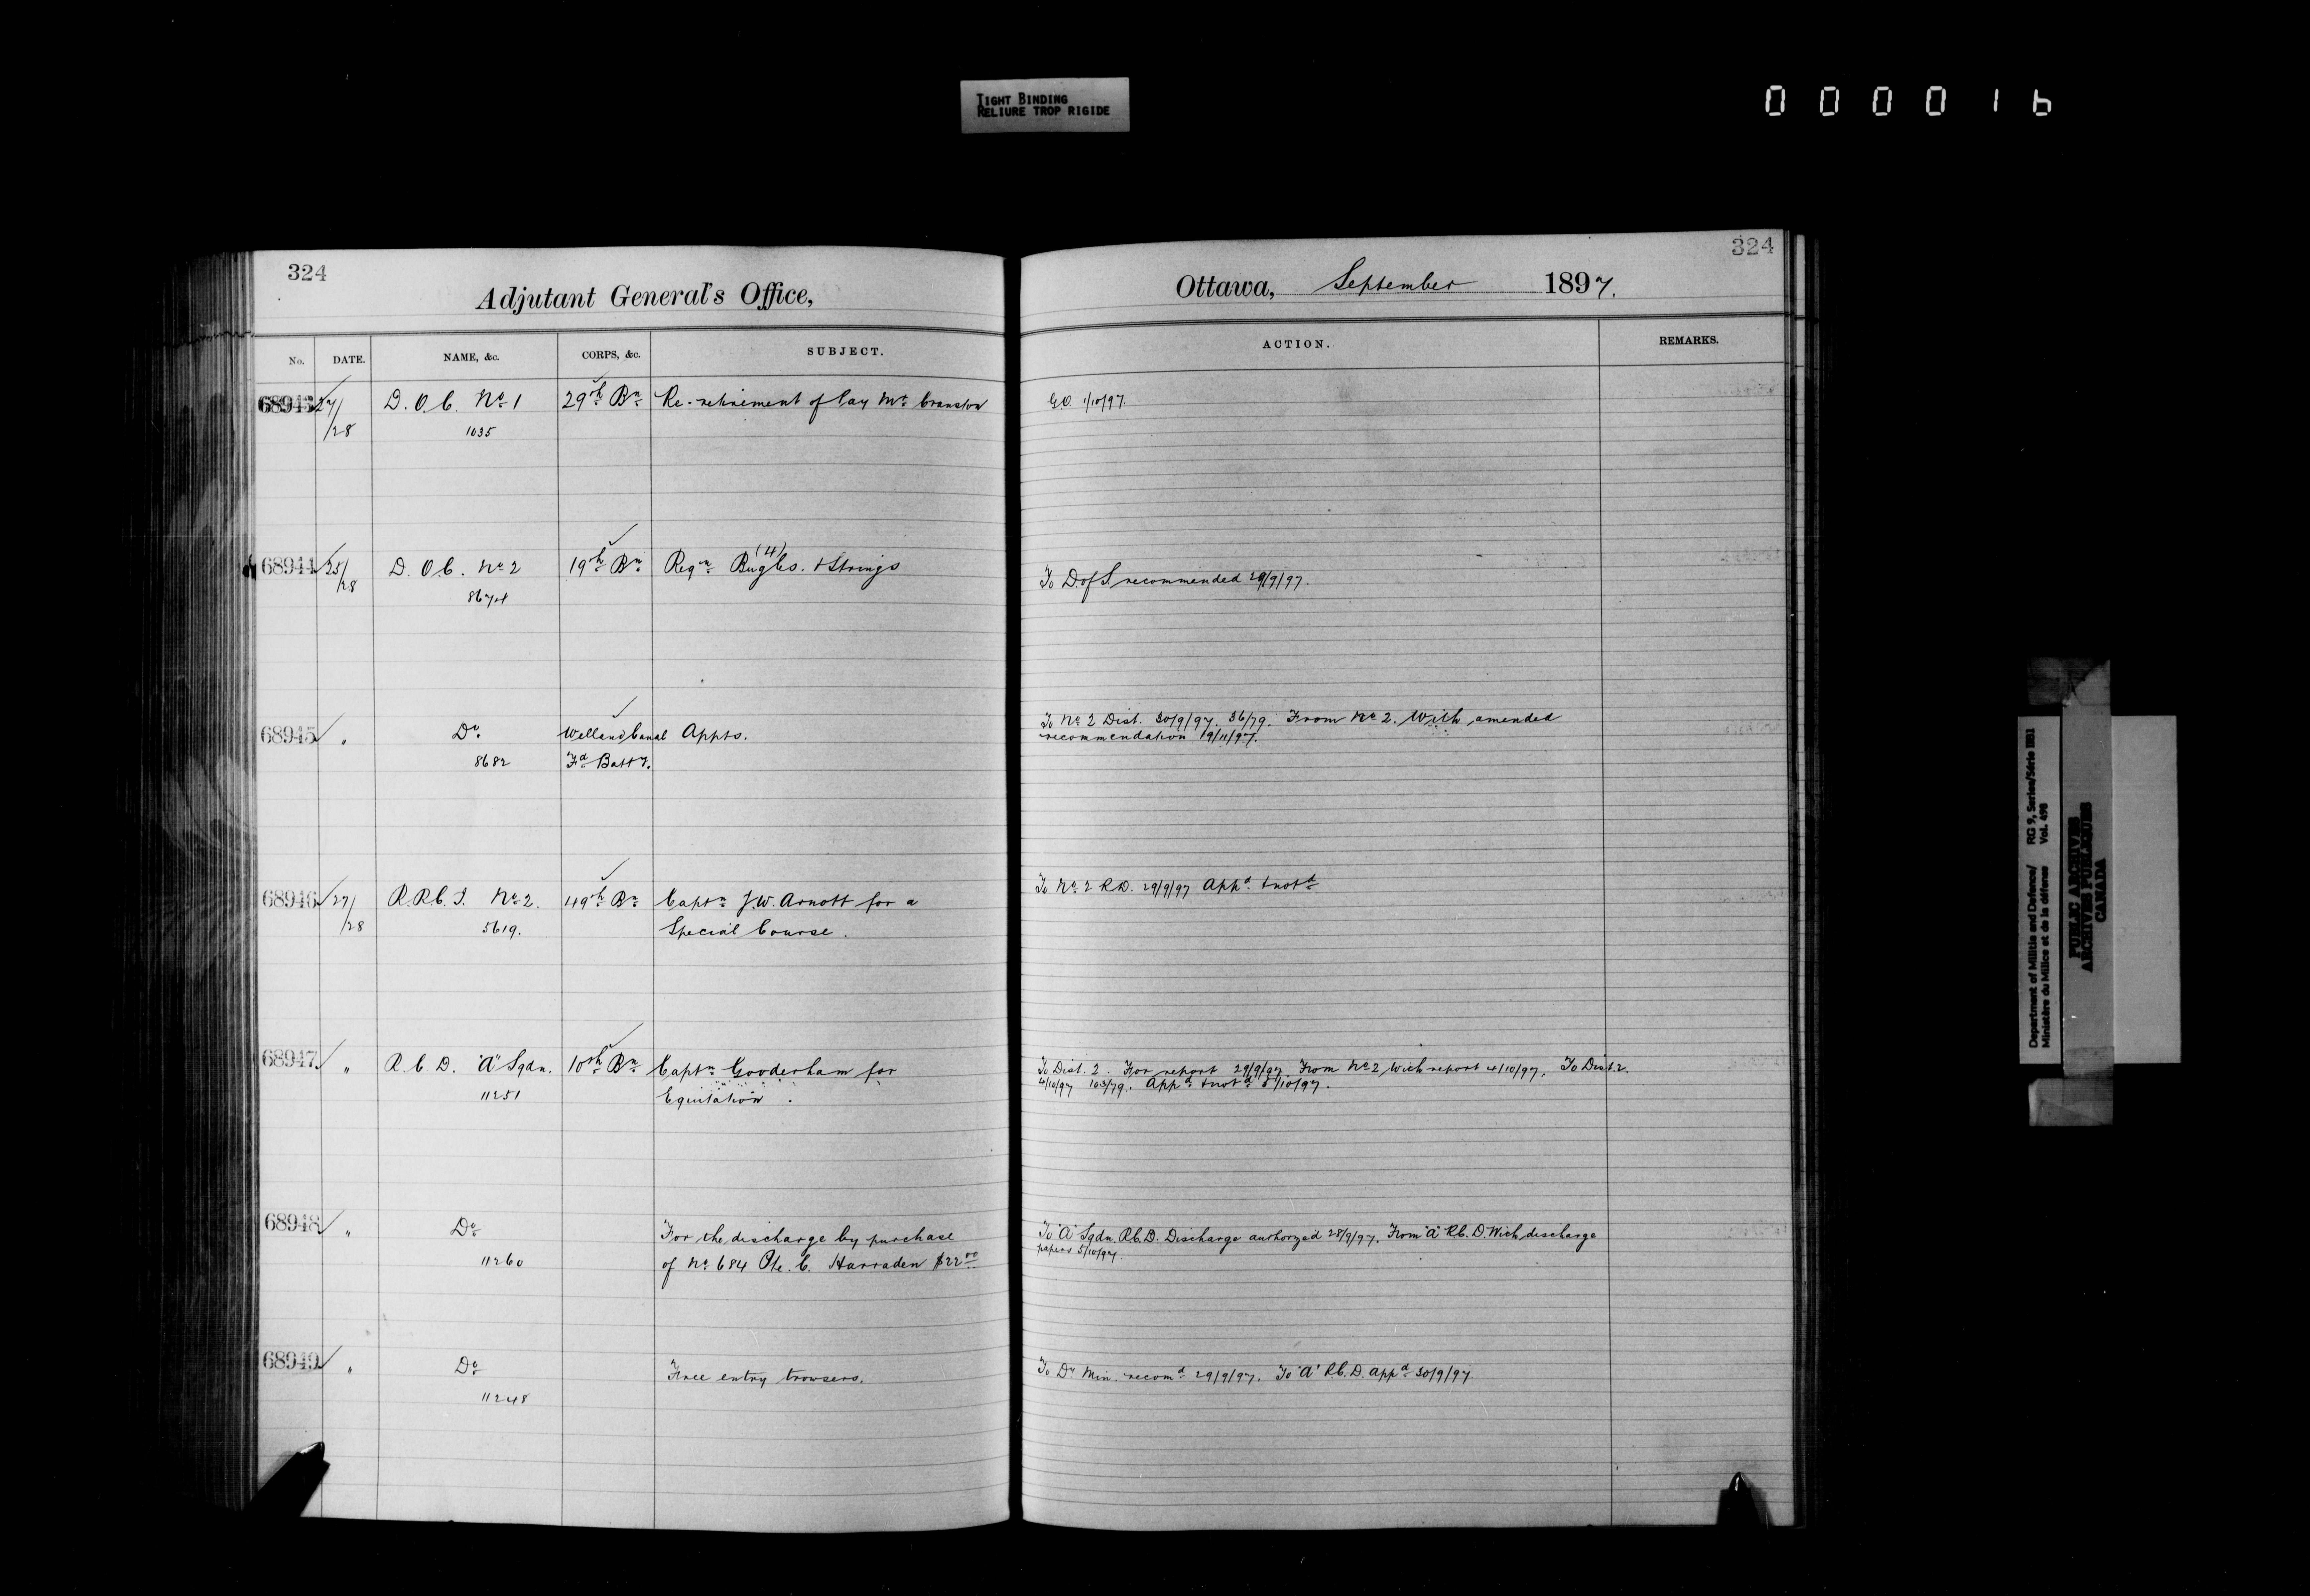 TIGHT BINDING
RELIURE TROP RIGIDE
0 0 0 0 1 6
324
Adjutant General's Office,
No. DATE. NAME, &c. CORPS, &c. SUBJECT.
68943 27/ D.O.C. No 1 29th Bn Re-retirement of Pay Mr Cranston
/28 1035
68944 25/ D.O.C. No 2 19th Bn Reqn Bugles (4) & Strings
/28 8674
68945 " Do Welland Canal Appts.
8682 Fd Batty.
68946 27/ R.R.C.I. No 2. 49th Bn Captn J.W. Arnott for a
/28 5619. Special Course.
68947 " R.C.D. "A" Sqdn. 10th Bn Captn Gooderham for
11251 Equitation.
68948 " Do For the discharge by purchase
11260 of No 684 Pte. C. Harraden $22.00
68949 " Do Free entry trowsers.
11248
324
Ottawa, September 1897.
ACTION. REMARKS.
G.O. 1/10/97.
To D of S recommended 29/9/97.
To No 2 Dist. 30/9/97. 36/79. From No 2. With amended
recommendation 19/11/97.
To No 2 R.D. 29/9/97 Appd & notd
To Dist. 2. For report 29/9/97 From No 2 With report 4/10/97. To Dist. 2.
4/10/97 103/79. Appd & notd 5/10/97.
To "A" Sqdn. R.C.D. Discharge authorized 28/9/97. From "A" R.C.D. With discharge
papers 5/10/97.
To Dy Min. recomd 29/9/97. To "A" R.C.D. appd 30/9/97.
Department of Militia and Defence/ RG 9, Series/Série IIB1
Ministère du Milice et de la défense Vol. 498
PUBLIC ARCHIVES
ARCHIVES PUBLIQUES
CANADA